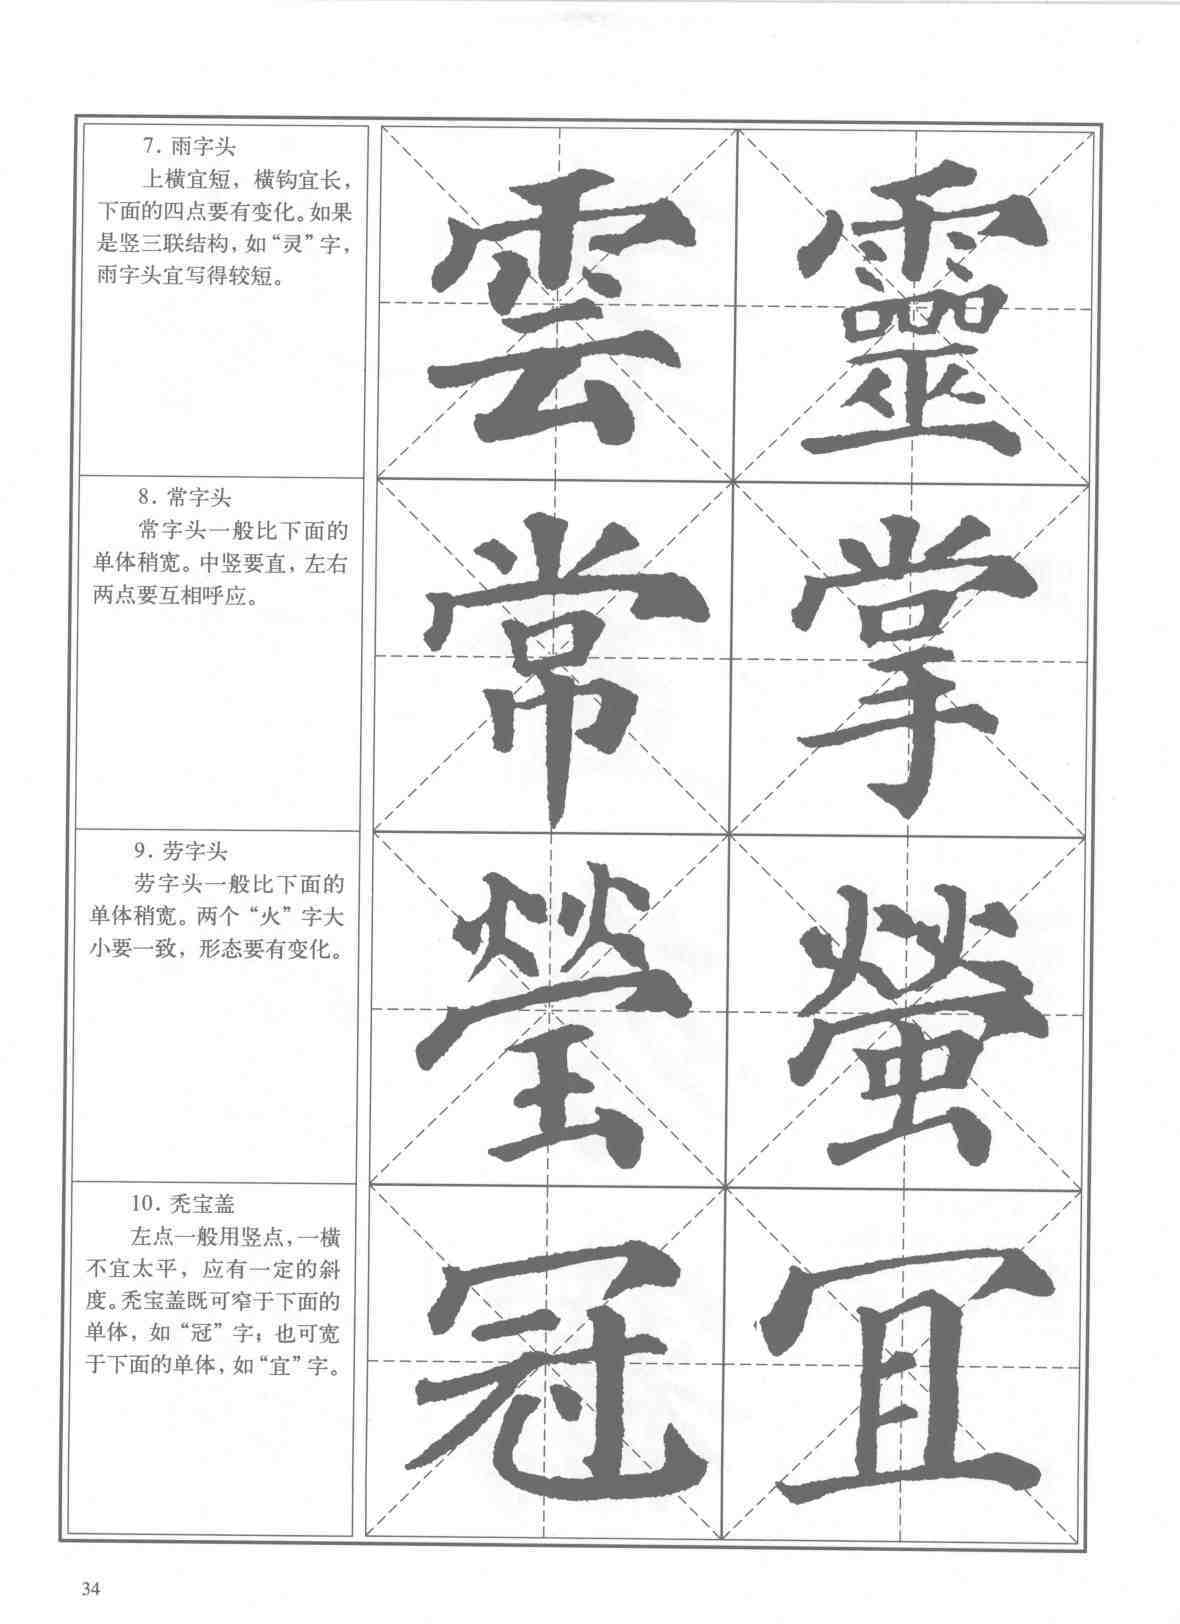 7. 雨字头
上横宜短，横钩宜长，
下面的四点要有变化。如果
是竖三联结构，如“灵”字，
雨字头宜写得较短。
雲 靈
8. 常字头
常字头一般比下面的
单体稍宽。中竖要直，左右
两点要互相呼应。
常 掌
9. 劳字头
劳字头一般比下面的
单体稍宽。两个“火”字大
小要一致，形态要有变化。
瑩 螢
10. 秃宝盖
左点一般用竖点，一横
不宜太平，应有一定的斜
度。秃宝盖既可窄于下面的
单体，如“冠”字；也可宽
于下面的单体，如“宜”字。
冠 冝
34